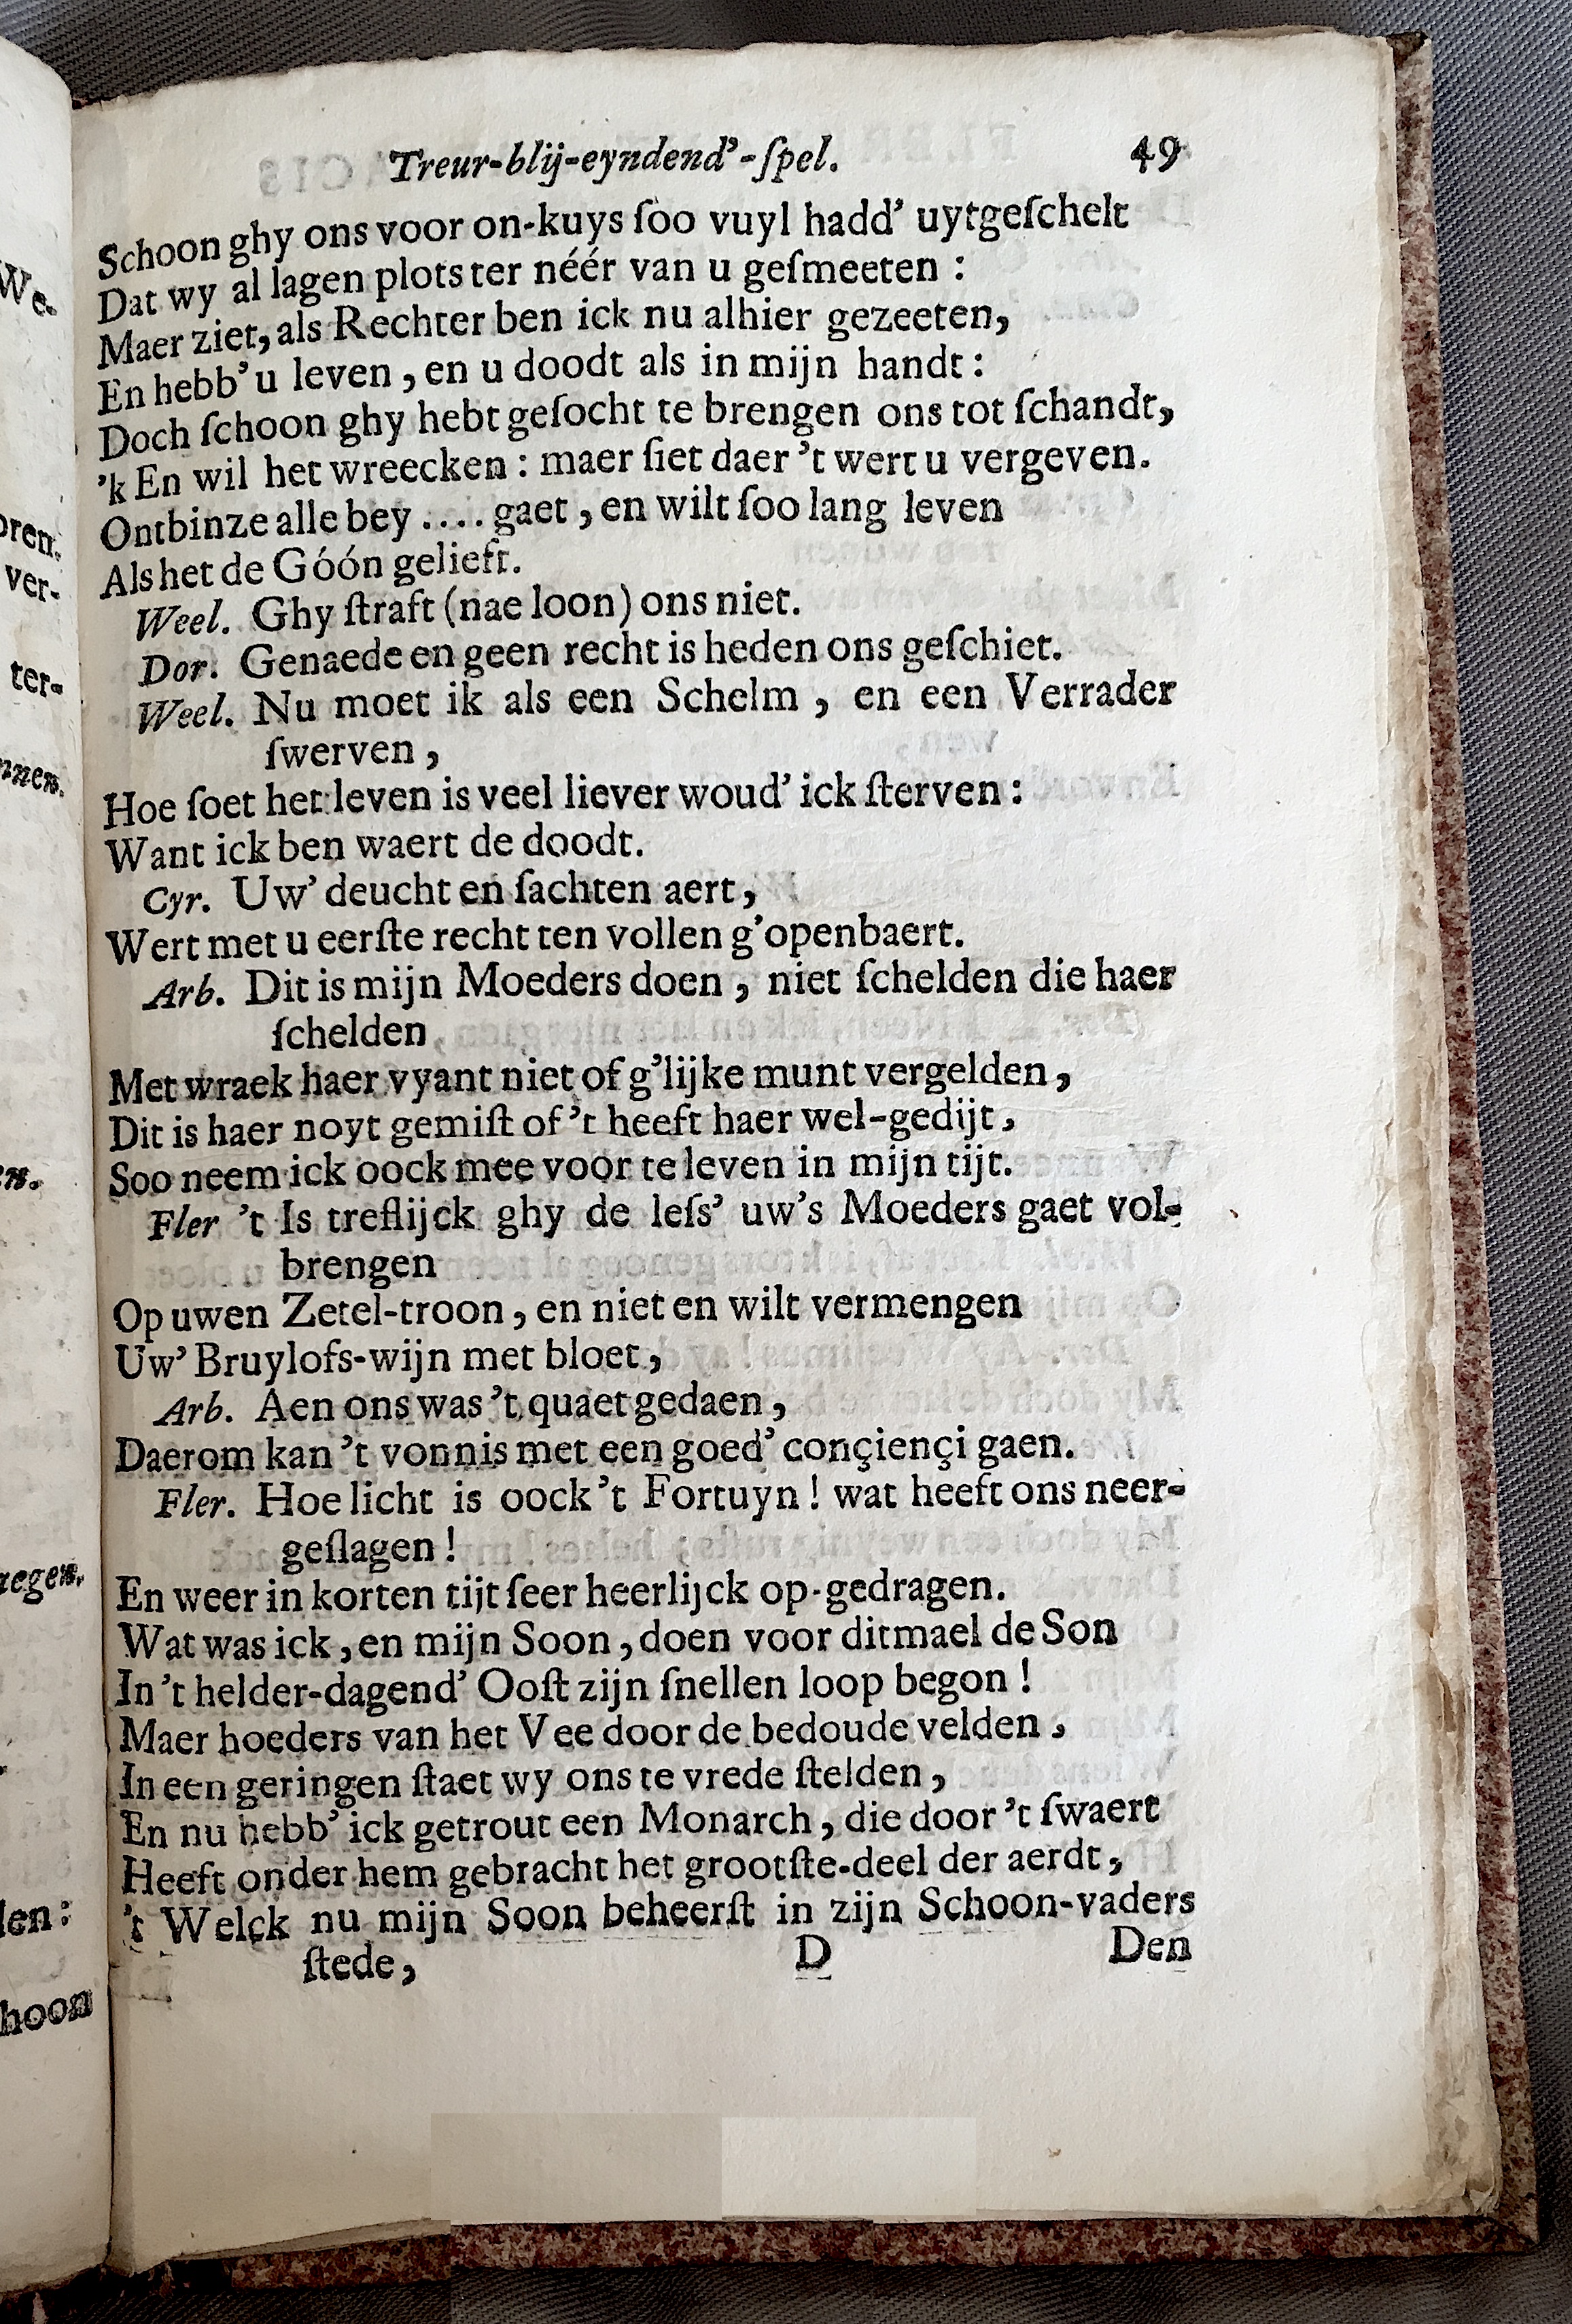 Treur-blij-eyndend'-ſpel. 49
Schoon ghy ons voor on-kuys ſoo vuyl hadd' uytgeſchelt
Dat wy al lagen plots ter néér van u geſmeeten :
Maer ziet, als Rechter ben ick nu alhier gezeeten,
En hebb' u leven, en u doodt als in mijn handt :
Doch ſchoon ghy hebt geſocht te brengen ons tot ſchandt,
'k En wil het wreecken : maer ſiet daer 't wert u vergeven.
Ontbinze alle bey .... gaet, en wilt ſoo lang leven
Als het de Góón gelieft.
Weel. Ghy ſtraft (nae loon) ons niet.
Dor. Genaede en geen recht is heden ons geſchiet.
Weel. Nu moet ik als een Schelm, en een Verrader
ſwerven,
Hoe ſoet het leven is veel liever woud' ick ſterven :
Want ick ben waert de doodt.
Cyr. Uw' deucht en ſachten aert,
Wert met u eerſte recht ten vollen g'openbaert.
Arb. Dit is mijn Moeders doen, niet ſchelden die haer
ſchelden
Met wraek haer vyant niet of g'lijke munt vergelden,
Dit is haer noyt gemiſt of 't heeft haer wel-gedijt,
Soo neem ick oock mee voor te leven in mijn tijt.
Fler 't Is treflijck ghy de leſs' uw's Moeders gaet vol-
brengen
Op uwen Zetel-troon, en niet en wilt vermengen
Uw' Bruylofs-wijn met bloet,
Arb. Aen ons was 't quaet gedaen,
Daerom kan 't vonnis met een goed' conçiençi gaen.
Fler. Hoe licht is oock 't Fortuyn ! wat heeft ons neer-
geſlagen !
En weer in korten tijt ſeer heerlijck op-gedragen.
Wat was ick, en mijn Soon, doen voor ditmael de Son
In 't helder-dagend' Ooſt zijn ſnellen loop begon !
Maer hoeders van het Vee door de bedoude velden,
In een geringen ſtaet wy ons te vrede ſtelden,
En nu hebb' ick getrout een Monarch, die door 't ſwaert
Heeft onder hem gebracht het grootſte-deel der aerdt,
't Welck nu mijn Soon beheerſt in zijn Schoon-vaders
ſtede, D Den